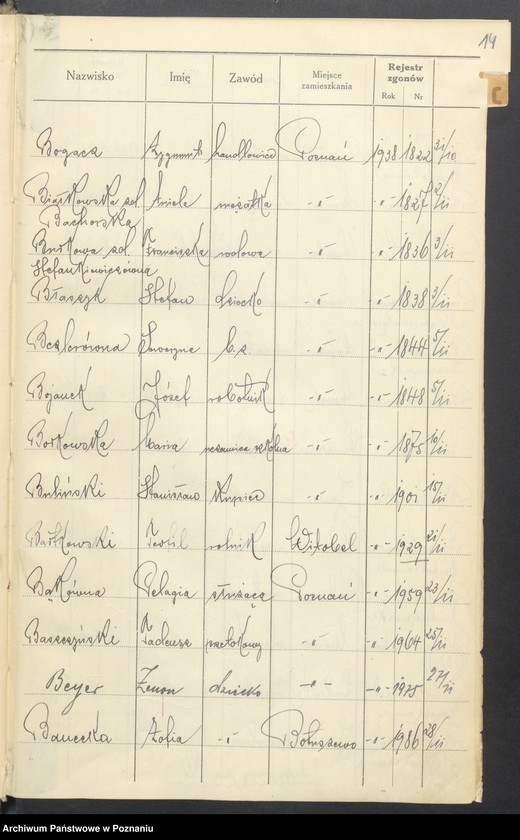 14
Nazwisko Imię Zawód Miejsce zamieszkania Rejestr zgonów Rok Nr
C
Bogacz Zygmunt handlowiec Poznań 1938 1822 31/10
Białkowska zd. Aniela mężatka -"- -"- 1827 2/11
Bachorska
Burkowa zd. Franciszka wdowa -"- -"- 1836 3/11
Stefankiewiczówna
Błaszyk Stefan dziecko -"- -"- 1838 3/11
Seweryna b.z. -"- -"- 1844 5/11
Józef robotnik -"- -"- 1848 5/11
Borkowska Maria uczennica szkolna -"- -"- 1875 10/11
Buliński Stanisław kupiec -"- -"- 1901 15/11
Bartkowski Teofil rolnik -"- 1929 21/11
Bąkówna Pelagia służąca Poznań -"- 1959 23/11
Baszczyński Tadeusz -"- -"- 1964 25/11
Beyer Zenon dziecko -"- -"- 1975 27/11
Banecka Zofia -"- -"- 1986 28/11
Archiwum Państwowe w Poznaniu